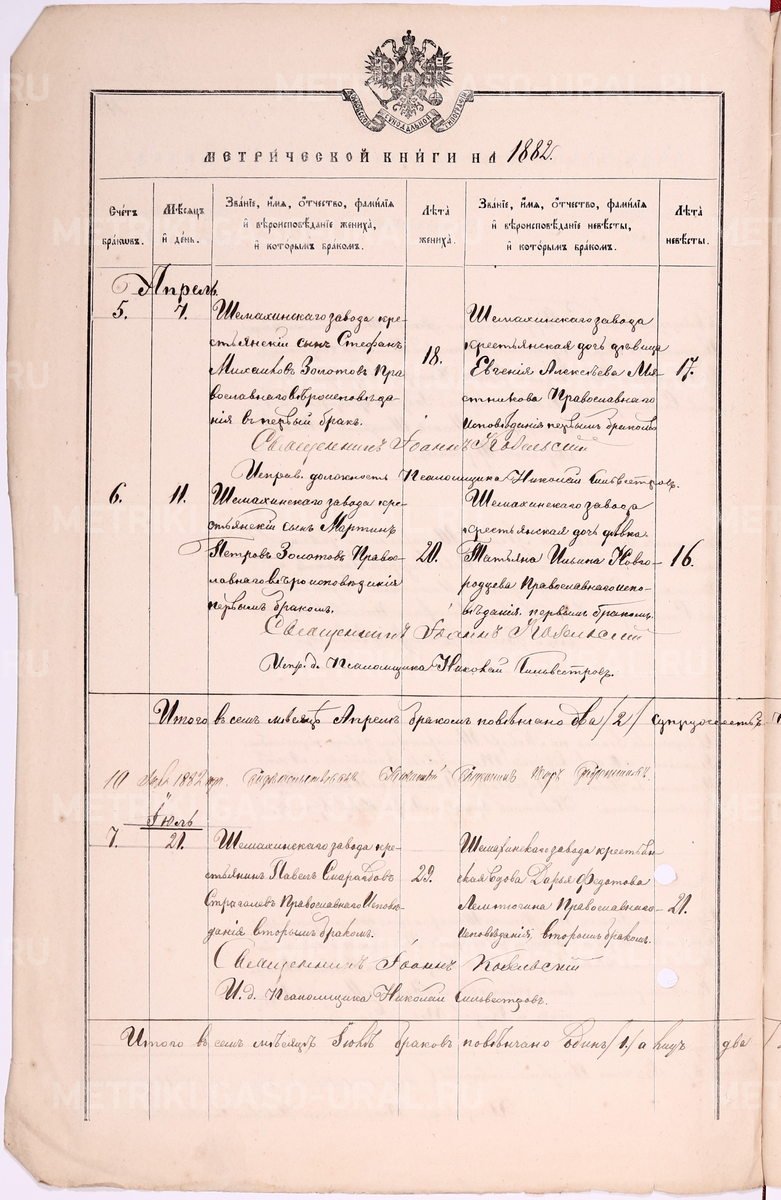 МЕТРИЧЕСКОЙ КНИГИ НА 1882.
Счетъ браковъ.
Мѣсяцъ и день.
Званіе, имя, отчество, фамилія и вѣроисповѣданіе жениха, и которымъ бракомъ.
Лѣта жениха.
Званіе, имя, отчество, фамилія и вѣроисповѣданіе невѣсты, и которымъ бракомъ.
Лѣта невѣсты.
Апрель
5.
7.
Шемахинскаго завода кре-
стьянскій сынъ Стефанъ
Михаиловъ Золотовъ Пра
вославнаго вѣроисповѣда
нія въ первый бракъ.
18.
Шемахинскаго завода
крестьянская дочь дѣвица
Евгенія Алексѣева Мя-
тникова Православнаго
исповѣданія первымъ бракомъ
17.
Священникъ Іоаннъ
Исправ. должность Псаломщика Николай Сильвестровъ.
6.
11.
Шемахинскаго завода кре-
стьянскій сынъ Мартинъ
Петровъ Золотовъ Право-
славнаго вѣроисповѣдикія
первымъ бракомъ.
20.
Шемахинскаго завода
крестьянская дочь дѣвка
Татьяна Ильина Новго-
родцева Православнаго испо-
вѣданія первымъ бракомъ.
16.
Священникъ Іоаннъ
Испр. д. Псаломщика Николай Сильвестровъ.
Итого въ семъ мѣсяцѣ Апрелѣ бракомъ повѣнчано два /2/
10 1882
Іюль
7.
21.
Шемахинскаго завода кре-
стьянинъ Павелъ
Православнаго Исповѣ-
данія вторымъ бракомъ.
29.
Шемахинскаго завода крестьян-
ская вдова Дарья Федотова
Православнаго
исповѣданія вторымъ бракомъ.
21.
Священникъ Іоаннъ
И. д. Псаломщика Николай Сильвестровъ.
Итого въ семъ мѣсяцѣ Іюлѣ браковъ повѣнчано Одинъ /1/ а лицъ два
METRIKI.GASO-URAL.RU